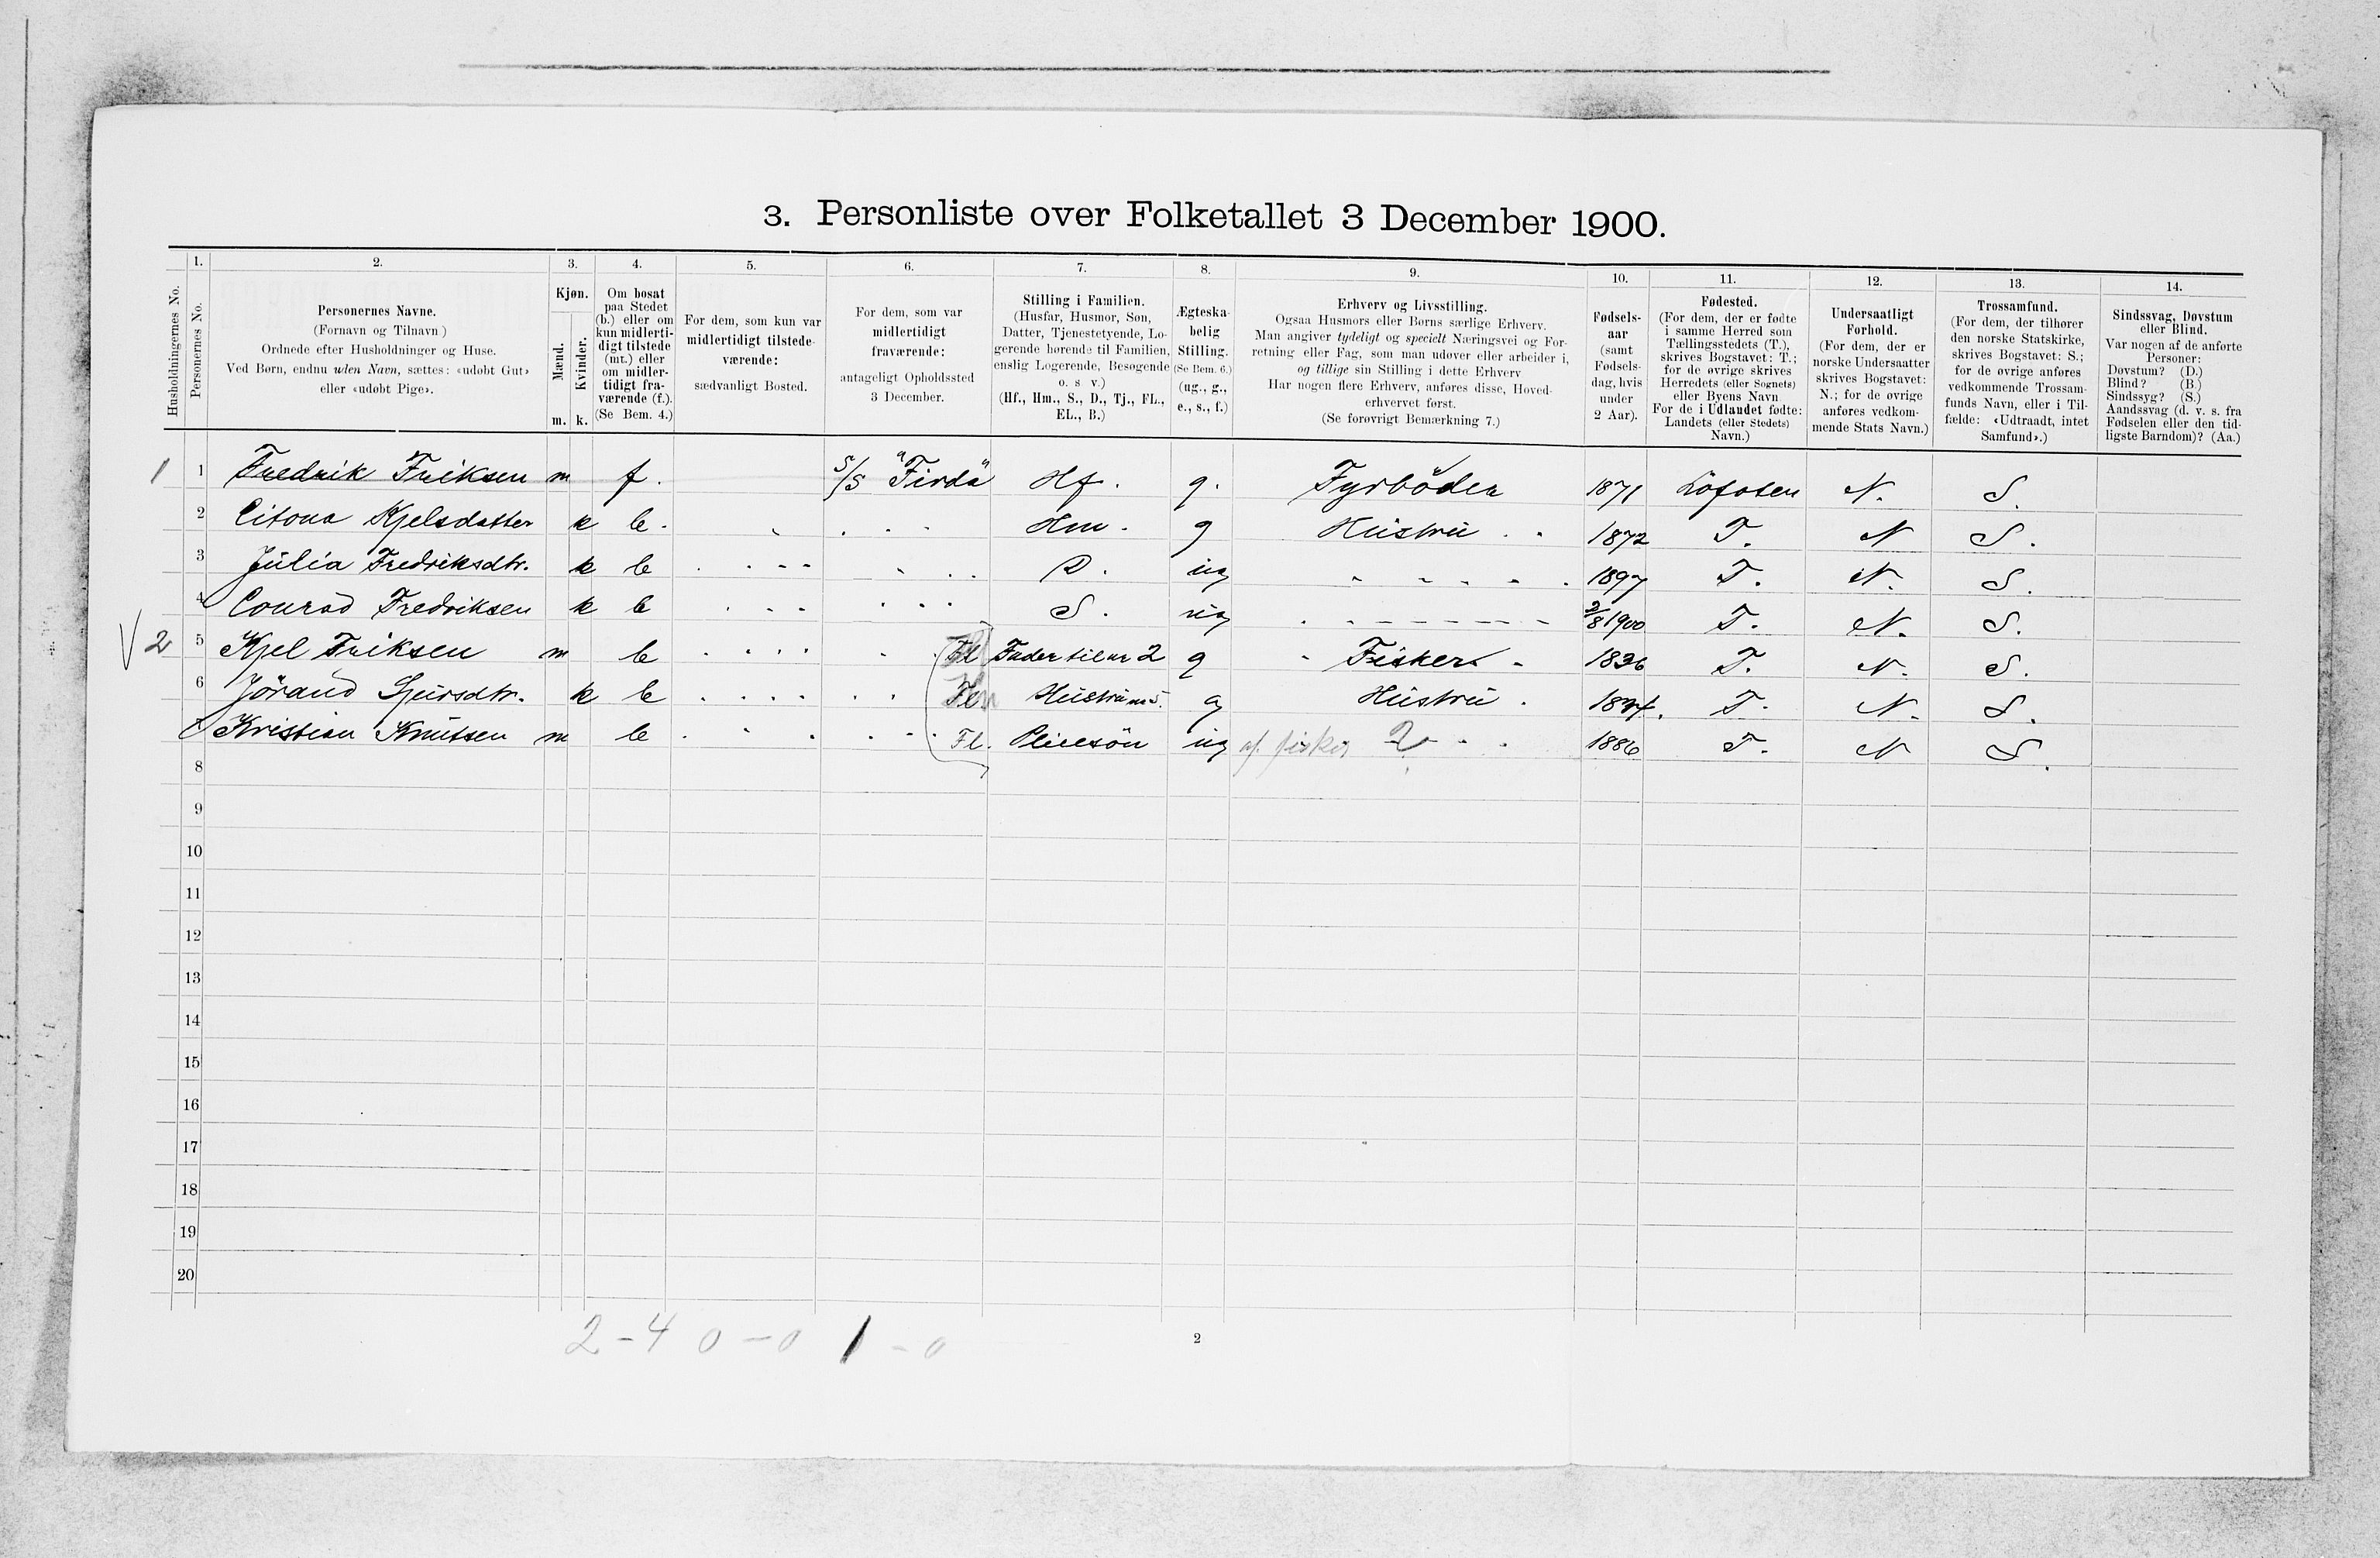 3. Personliste over Folketallet 3 December 1900.
Husholdningernes No.
1. Personernes No.
2. Personernes Navne.
(Fornavn og Tilnavn)
Ordnede efter Husholdninger og Huse.
Ved Børn, endnu uden Navn, sættes: «udøbt Gut»
eller «udøbt Pige».
3. Kjøn.
Mænd. Kvinder.
m. k.
4. Om bosat
paa Stedet
(b.) eller om
kun midlerti-
digt tilstede
(mt.) eller
om midler-
tidigt fra-
værende (f.).
(Se Bem. 4.)
5. For dem, som kun var
midlertidigt tilstede-
værende:
sædvanligt Bosted.
6. For dem, som var
midlertidigt
fraværende:
antageligt Opholdssted
3 December.
7. Stilling i Familien.
(Husfar, Husmor, Søn,
Datter, Tjenestetyende, Lo-
gerende hørende til Familien,
enslig Logerende, Besøgende
o. s v.)
(Hf., Hm., S., D., Tj., FL.,
EL., B.)
8. Ægteska-
belig
Stilling.
(Se Bem. 6.)
(ug., g.,
e., s., f.)
9. Erhverv og Livsstilling.
Ogsaa Husmors eller Børns særlige Erhverv.
Man angiver tydeligt og specielt Næringsvei og For-
retning eller Fag, som man udøver eller arbeider i,
og tillige sin Stilling i dette Erhverv
Har nogen flere Erhverv, anføres disse, Hoved-
erhvervet først.
(Se forøvrigt Bemærkning 7.)
10. Fødsels-
aar
(samt
Fødsels-
dag, hvis
under
2 Aar).
11. Fødested.
(For dem, der er fødte
i samme Herred som
Tællingsstedets (T.),
skrives Bogstavet: T.;
for de øvrige skrives
Herredets (eller Sognets)
eller Byens Navn
For de i Udlandet fødte:
Landets (eller Stedets)
Navn.)
12. Undersaatligt
Forhold.
(For dem, der er
norske Undersaatter
skrives Bogstavet:
N.; for de øvrige
anføres vedkom-
mende Stats Navn.)
13. Trossamfund.
(For dem, der tilhører
den norske Statskirke,
skrives Bogstavet: S.;
for de øvrige anføres
vedkommende Trossam-
funds Navn, eller i Til-
fælde: «Udtraadt, intet
Samfund».)
14. Sindssvag, Døvstum
eller Blind.
Var nogen af de anførte
Personer:
Døvstum? (D.)
Blind? (B.)
Sindssyg? (S.)
Aandssvag (d. v. s. fra
Fødselen eller den tid-
ligste Barndom)? (Aa.)
1 1 Fredrik Friksen m f. S/S "Firda" Hf. g. Fyrböder 1871 Lofoten N. S.
2 Citona Kjelsdatter k b. Hm. g Hustru 1872 T. N S.
3 Julia Fredriksdtr. k b D. ug 1897 T. N. S.
4 Conrad Fredriksen k b S. ug 2/8 1900 T. N. S.
2 5 Kjel Friksen m b Fl Fader til nr 2 g Fisker 1836 T. N. S.
6 Jörand k b Fl Hustru g Hustru T. N. S.
Kristian Knutsen m b Fl. Pleiesön ug af fisker 1886 T. N S.
8
9
10
11
12
13
14
15
16
17
18
19
20
2 - 4 0 - 0 1 - 0
2